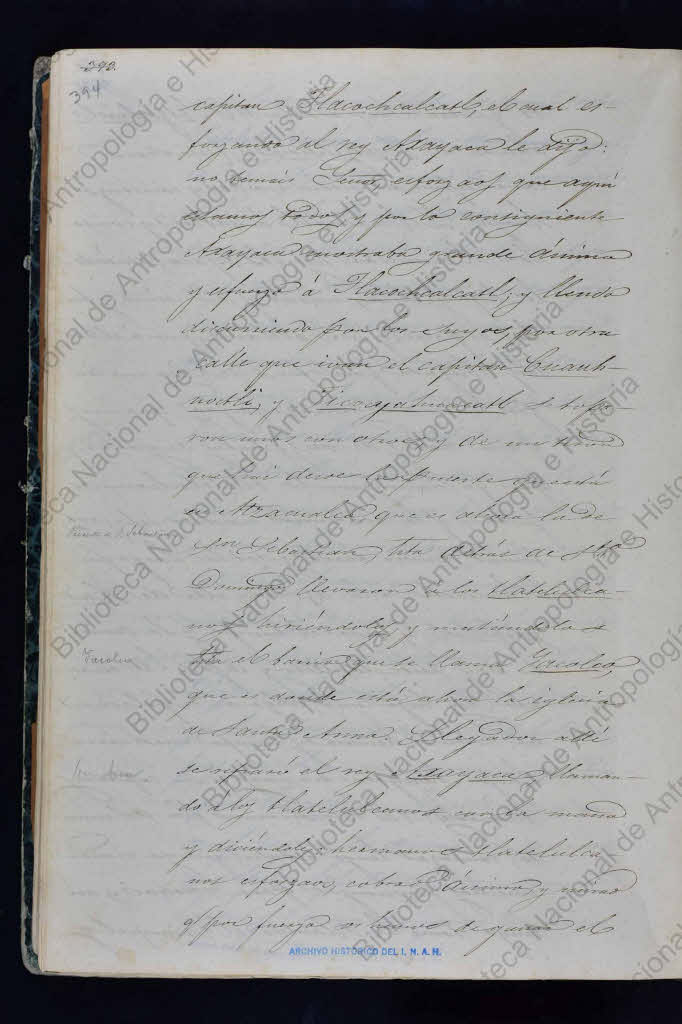 393.
394
capitan Tlacochcalcatl, el cual es-
forzando al rey Axayaca le dijo:
no temais Señor, esforzaos que aqui
estamos todos, y por lo consiguiente
Axayaca mostraba grande ánimo
y esfuerzo á Tlacochcalcatl; y llendo
discurriendo por los suyos, por otra
calle que ivan el capitan Cuauh-
noctli, y Ticocyahuacatl se topa-
ron unos con otros, y de un tiron
que fué desde la puente que está
en Atzacualco, que es ahora la de
Sn Sebastian, hta detrás de Sto
Domingo llevaron á los tlatelulca-
nos hiriéndoles y matándolos
hta el barrio que se llama Yacolco,
que es donde está ahora la iglesia
de Santa Anna. Llegados alli
se refrenó el rey Axayaca llaman-
do a los tlatelulcanos con la mano
y diciéndoles: hermanos tlatelulca-
nos esforzaos, cobrad ánimo, y mirad
q/ por fuerza os hemos de ganar el
Puente de S. Sebastian
Yacolco
Sta Ana.
ARCHIVO HISTORICO DEL I. N. A. H.
Biblioteca Nacional de Antropología e Historia